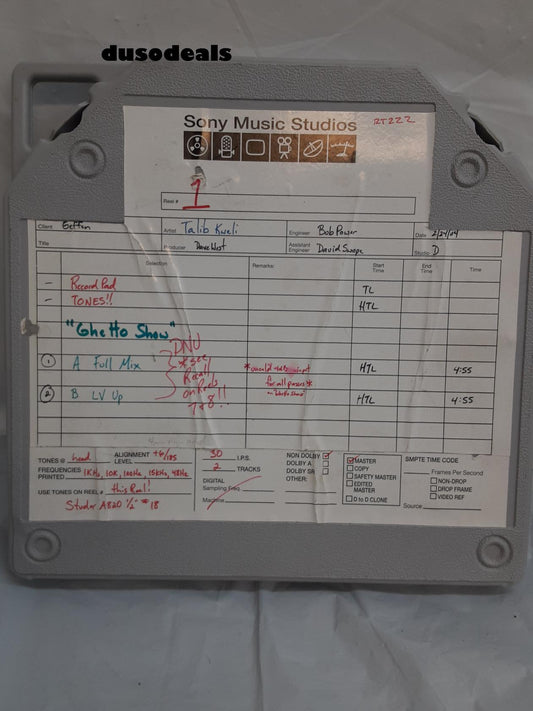 dusodeals
Sony Music Studios RT222
Reel # 1
Client Geffen Artist Talib Kweli Engineer Bob Power Date 2/24/04
Title Producer Dave West Assistant Engineer David Swope Studio D
Selection Remarks: Start Time End Time Time
- Record Pad TL
- TONES!! HTL
"Ghetto Show"
DNU
1 A Full Mix * see HTL 4:55
Recall
on Reels
2 B LV Up 7+8!! HTL 4:55
for all passes *
on "Ghetto Show"
TONES @ head ALIGNMENT LEVEL +6/185 30 I.P.S. NON DOLBY MASTER SMPTE TIME CODE
FREQUENCIES PRINTED 1KHz, 10K, 100Hz, 15KHz, 48Hz 2 TRACKS DOLBY A COPY Frames Per Second
DOLBY SR SAFETY MASTER NON-DROP
USE TONES ON REEL # this Reel! DIGITAL OTHER: EDITED MASTER DROP FRAME
Sampling Freq. VIDEO REF
Studer A820 1/2" # 18 Machine D to D CLONE Source